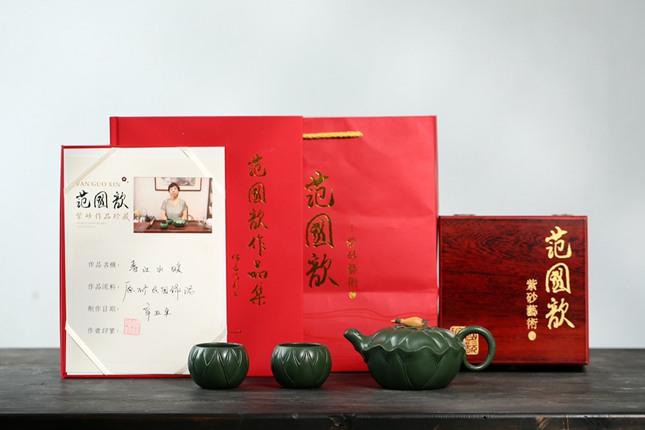 FAN GUO XIN
范國歆
紫砂作品珍藏
作品名稱：春江水暖
作品泥料：
制作日期：辛丑年
作者印鑒：
范國歆作品集
范國歆
紫砂藝術
范國歆
紫砂藝術